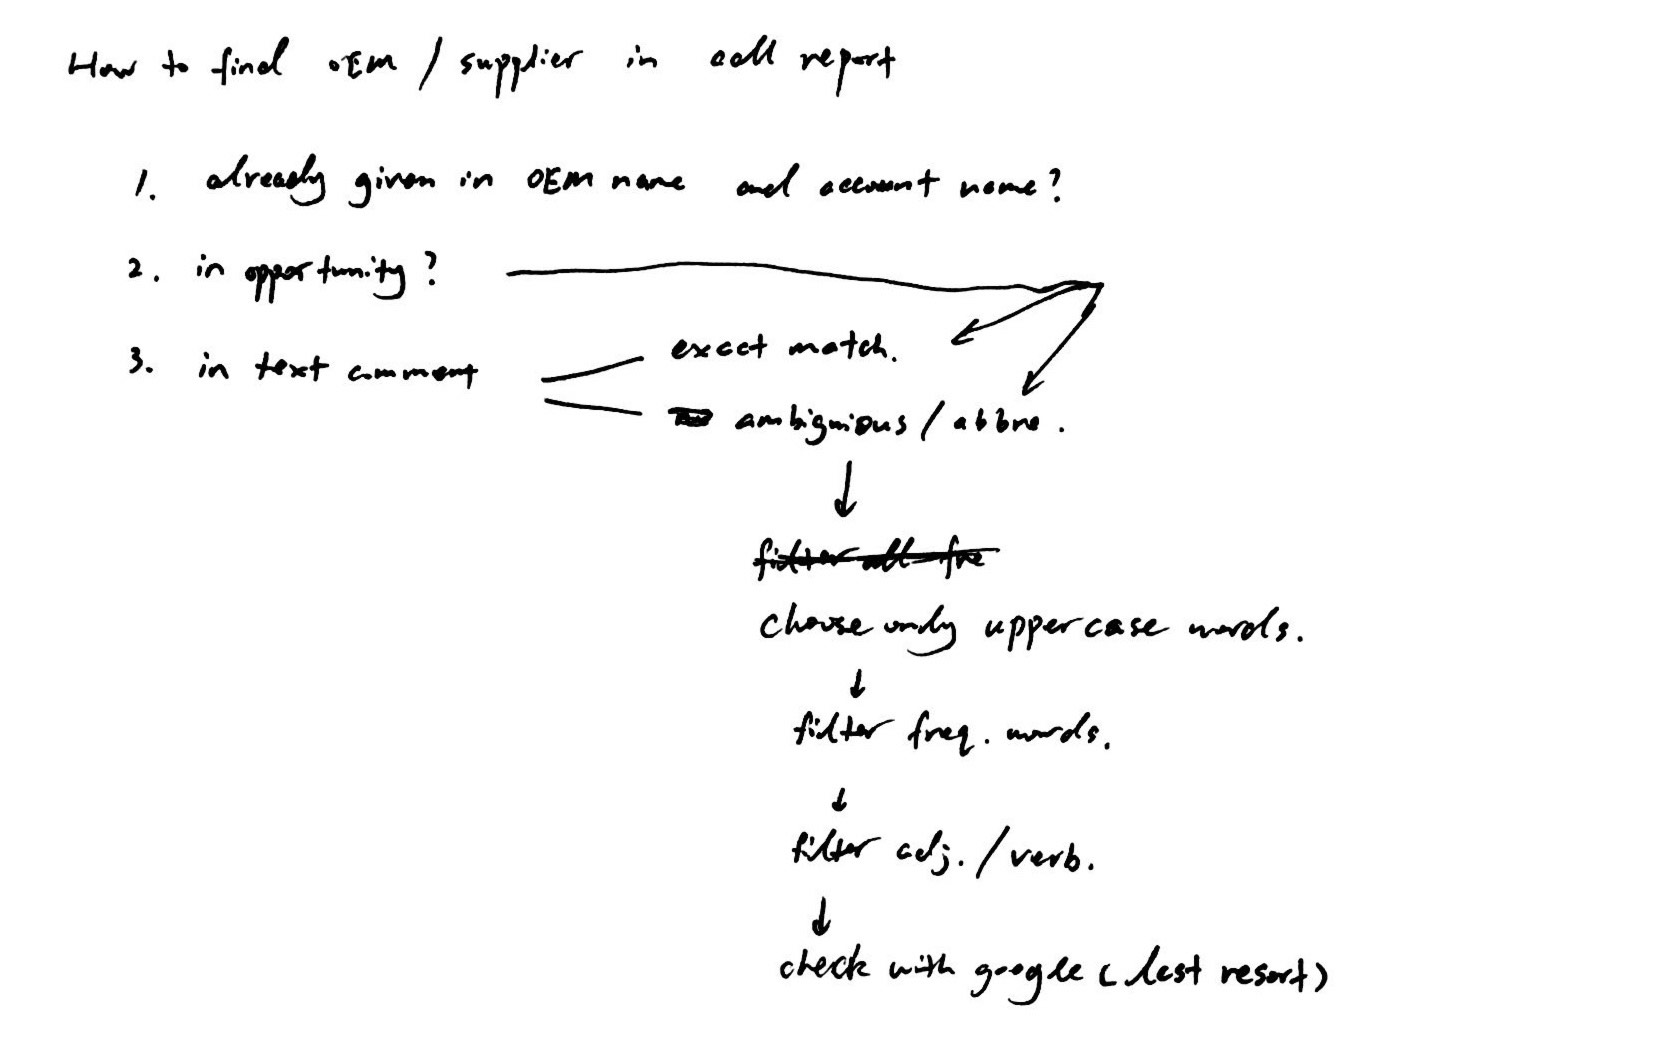 How to find OEM / supplier in call report
1. already given in OEM name and account name?
2. in opportunity?
3. in text comment
exact match.
ambiguious / abbre.
filter all fre
choose only uppercase words.
filter freq. words.
filter adj. / verb.
check with google (last resort)